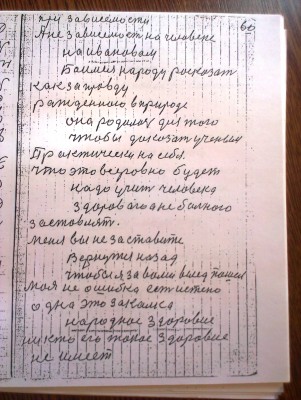 60
при зависемости
А не зависемост на человеке
на ивановам
Баимся народу росказат
как за правду
ражденного в природе
она родилас для того
чтобы доказат ученым
Практически на себя
что это всеровно будет
надо учит человека
здоровага а не болного
заставлят.
меня вы не заставите
Вернутся назад
чтобы я за вами вмед пошол
Моя не ошибка ест истено
одна это закалка
народное здоровие
никто его такое здоровие
не имеет